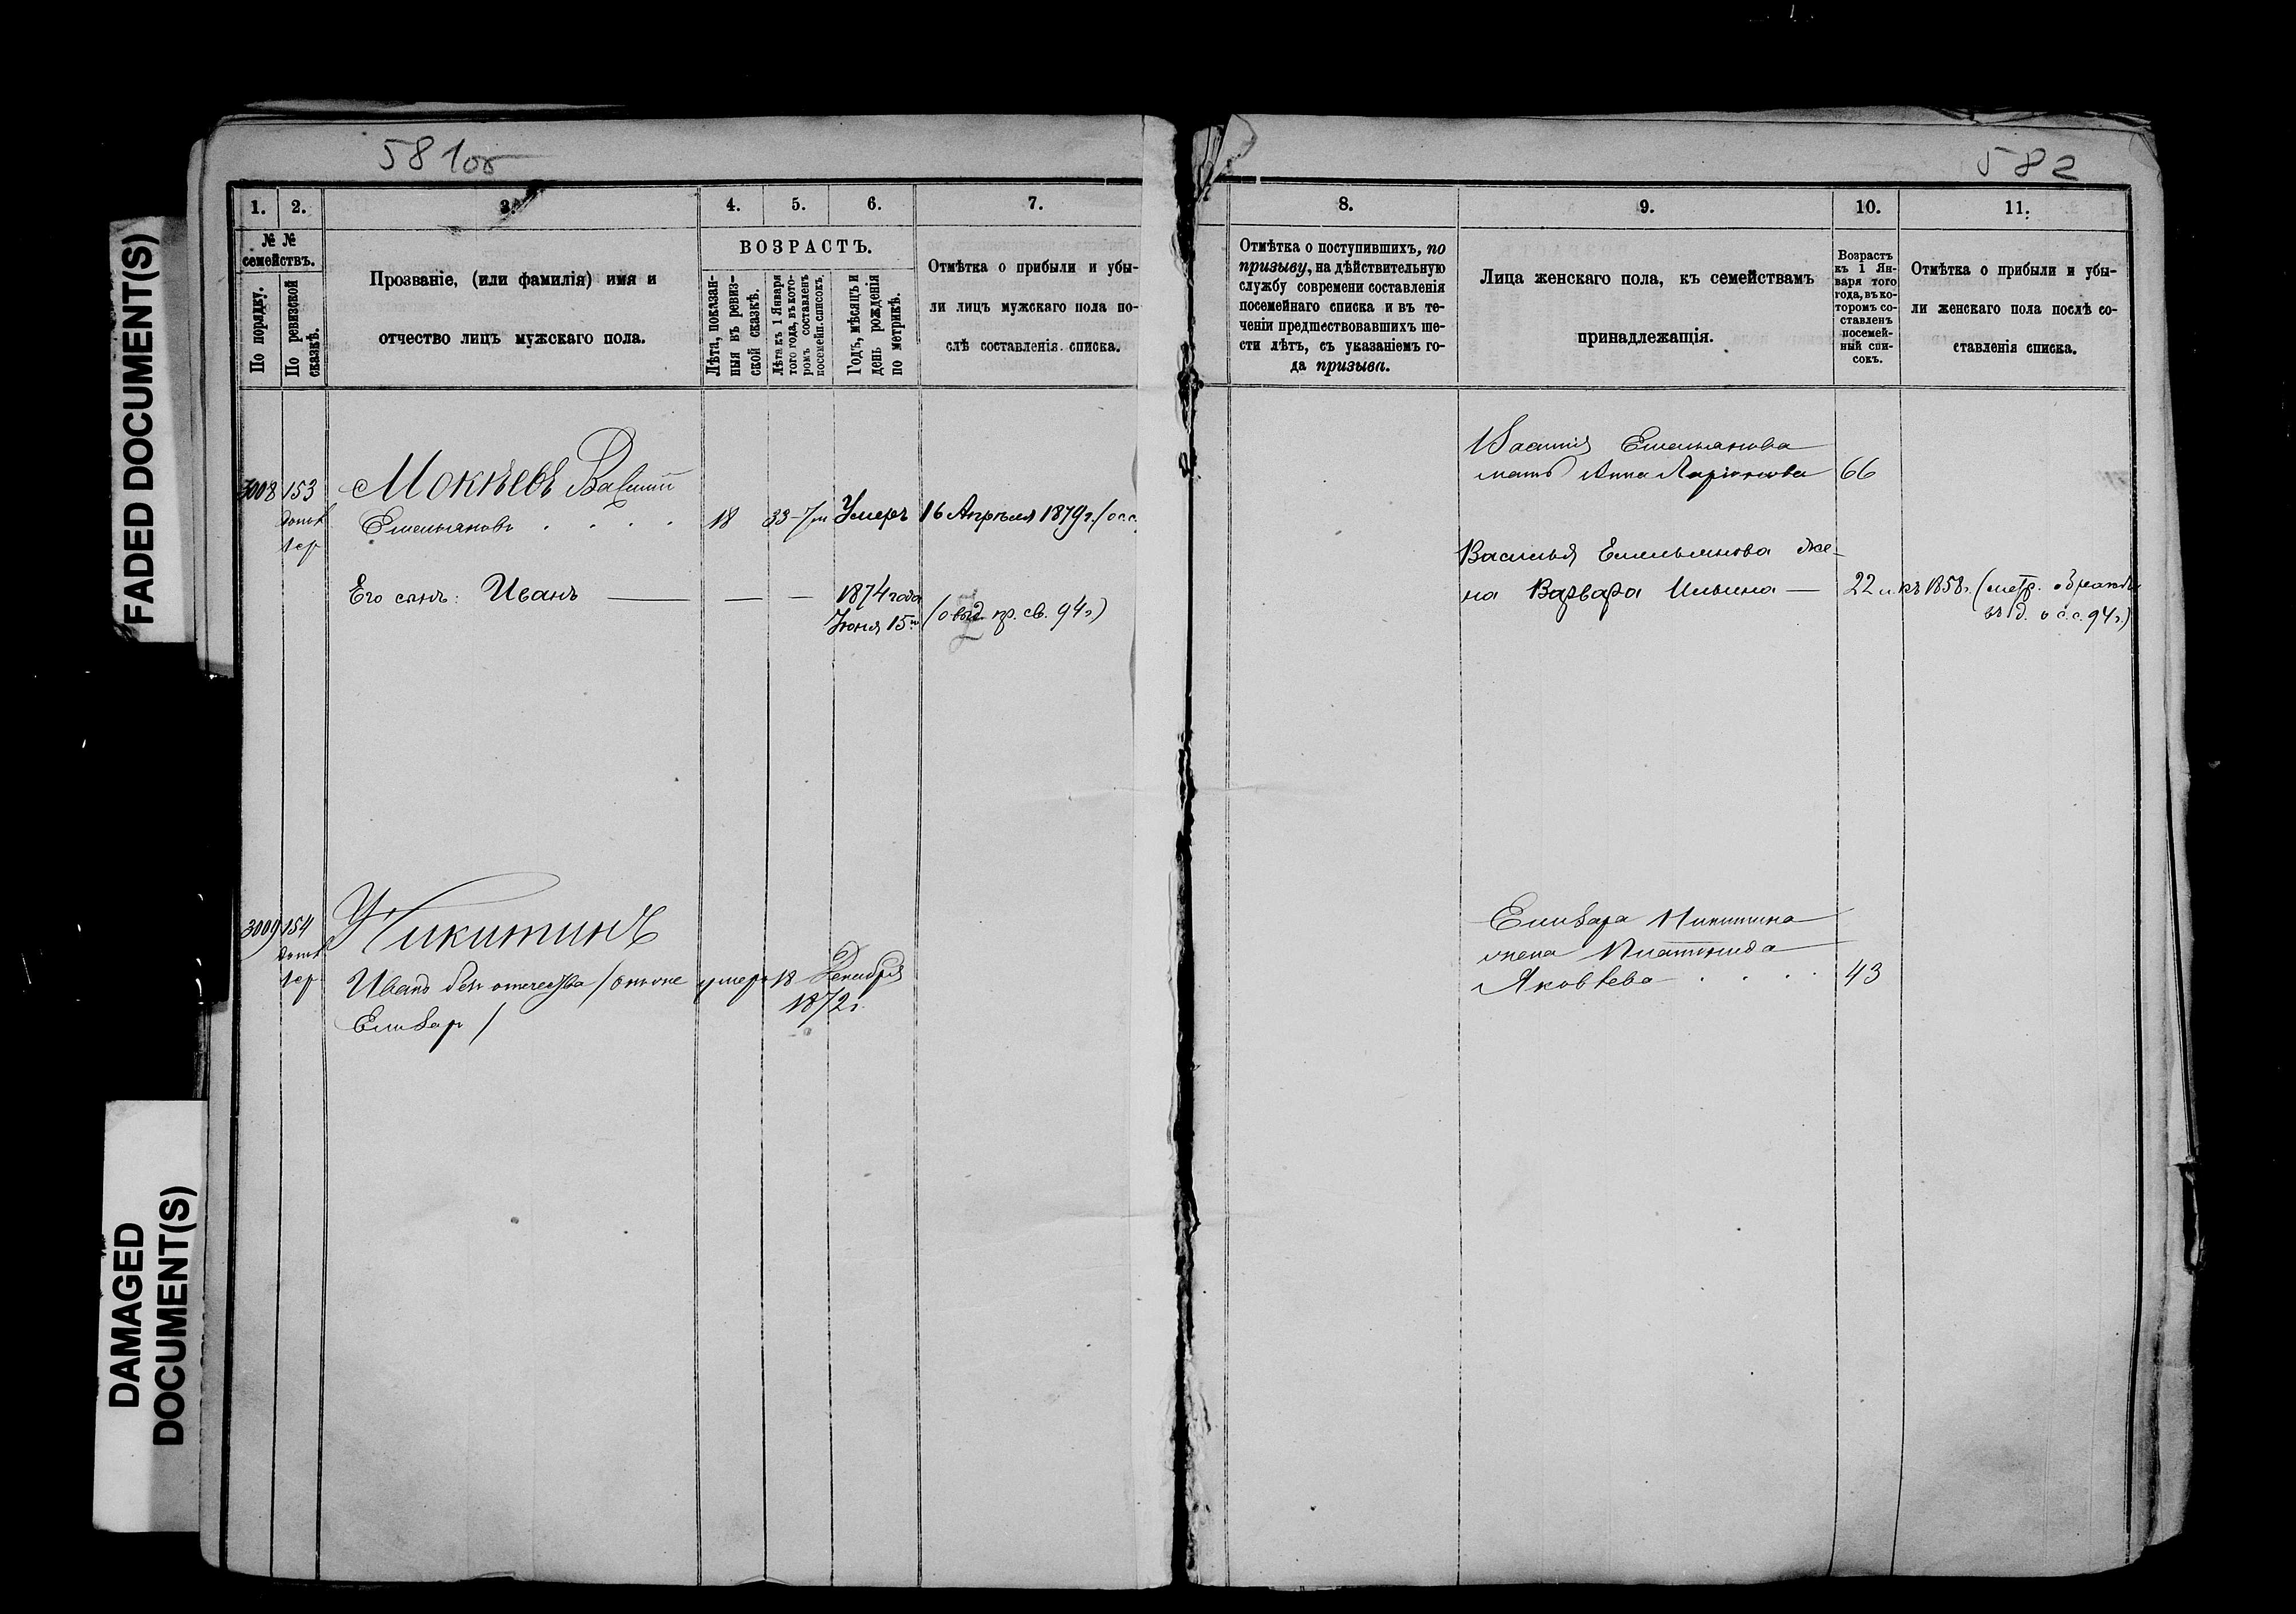 581об
582
FADED DOCUMENT(S)
DAMAGED
DOCUMENT(S)
1.
2.
3.
4.
5.
6.
7.
№ №
семействъ.
По порядку.
По ревизской
сказкѣ.
Прозваніе, (или фамилія) имя и
отчество лицъ мужскаго пола.
ВОЗРАСТЪ.
Лѣта, показан-
ныя въ ревиз-
ской сказкѣ.
Лѣта къ 1 Января
того года, въ кото-
ромъ составленъ
посемейн. списокъ.
Годъ, мѣсяцъ и
день рожденія
по метрикѣ.
Отмѣтка о прибыли и убы-
ли лицъ мужскаго пола по-
слѣ составленія списка.
3008
153
Мокѣевъ Василій
Емельяновъ . . . .
18
33
Умеръ 16 Апрѣля 1879г.
Его сынъ: Иванъ — — —
1874 года
Іюня 15
пр. св. 94г)
3009
154
Никитинъ
Иванъ безъ отчества (онъ же умеръ 18 Декабря
1872г.
8.
9.
10.
11.
Отмѣтка о поступившихъ, по
призыву, на дѣйствительную
службу современи составленія
посемейнаго списка и въ те-
ченіи предшествовавшихъ ше-
сти лѣтъ, съ указаніемъ го-
да призыва.
Лица женскаго пола, къ семействамъ
принадлежащія.
Возрастъ
къ 1 Ян-
варя того
года, въ ко-
торомъ со-
ставленъ
посемей-
ный спи-
сокъ.
Отмѣтка о прибыли и убы-
ли женскаго пола послѣ со-
ставленія списка.
Василія Емельянова
мать Анна Ларіонова 66
Василья Емельянова же-
на Варвара Ильина — 22
1858г.
94г.)
Никитина
жена
Яковлева . . . . 43